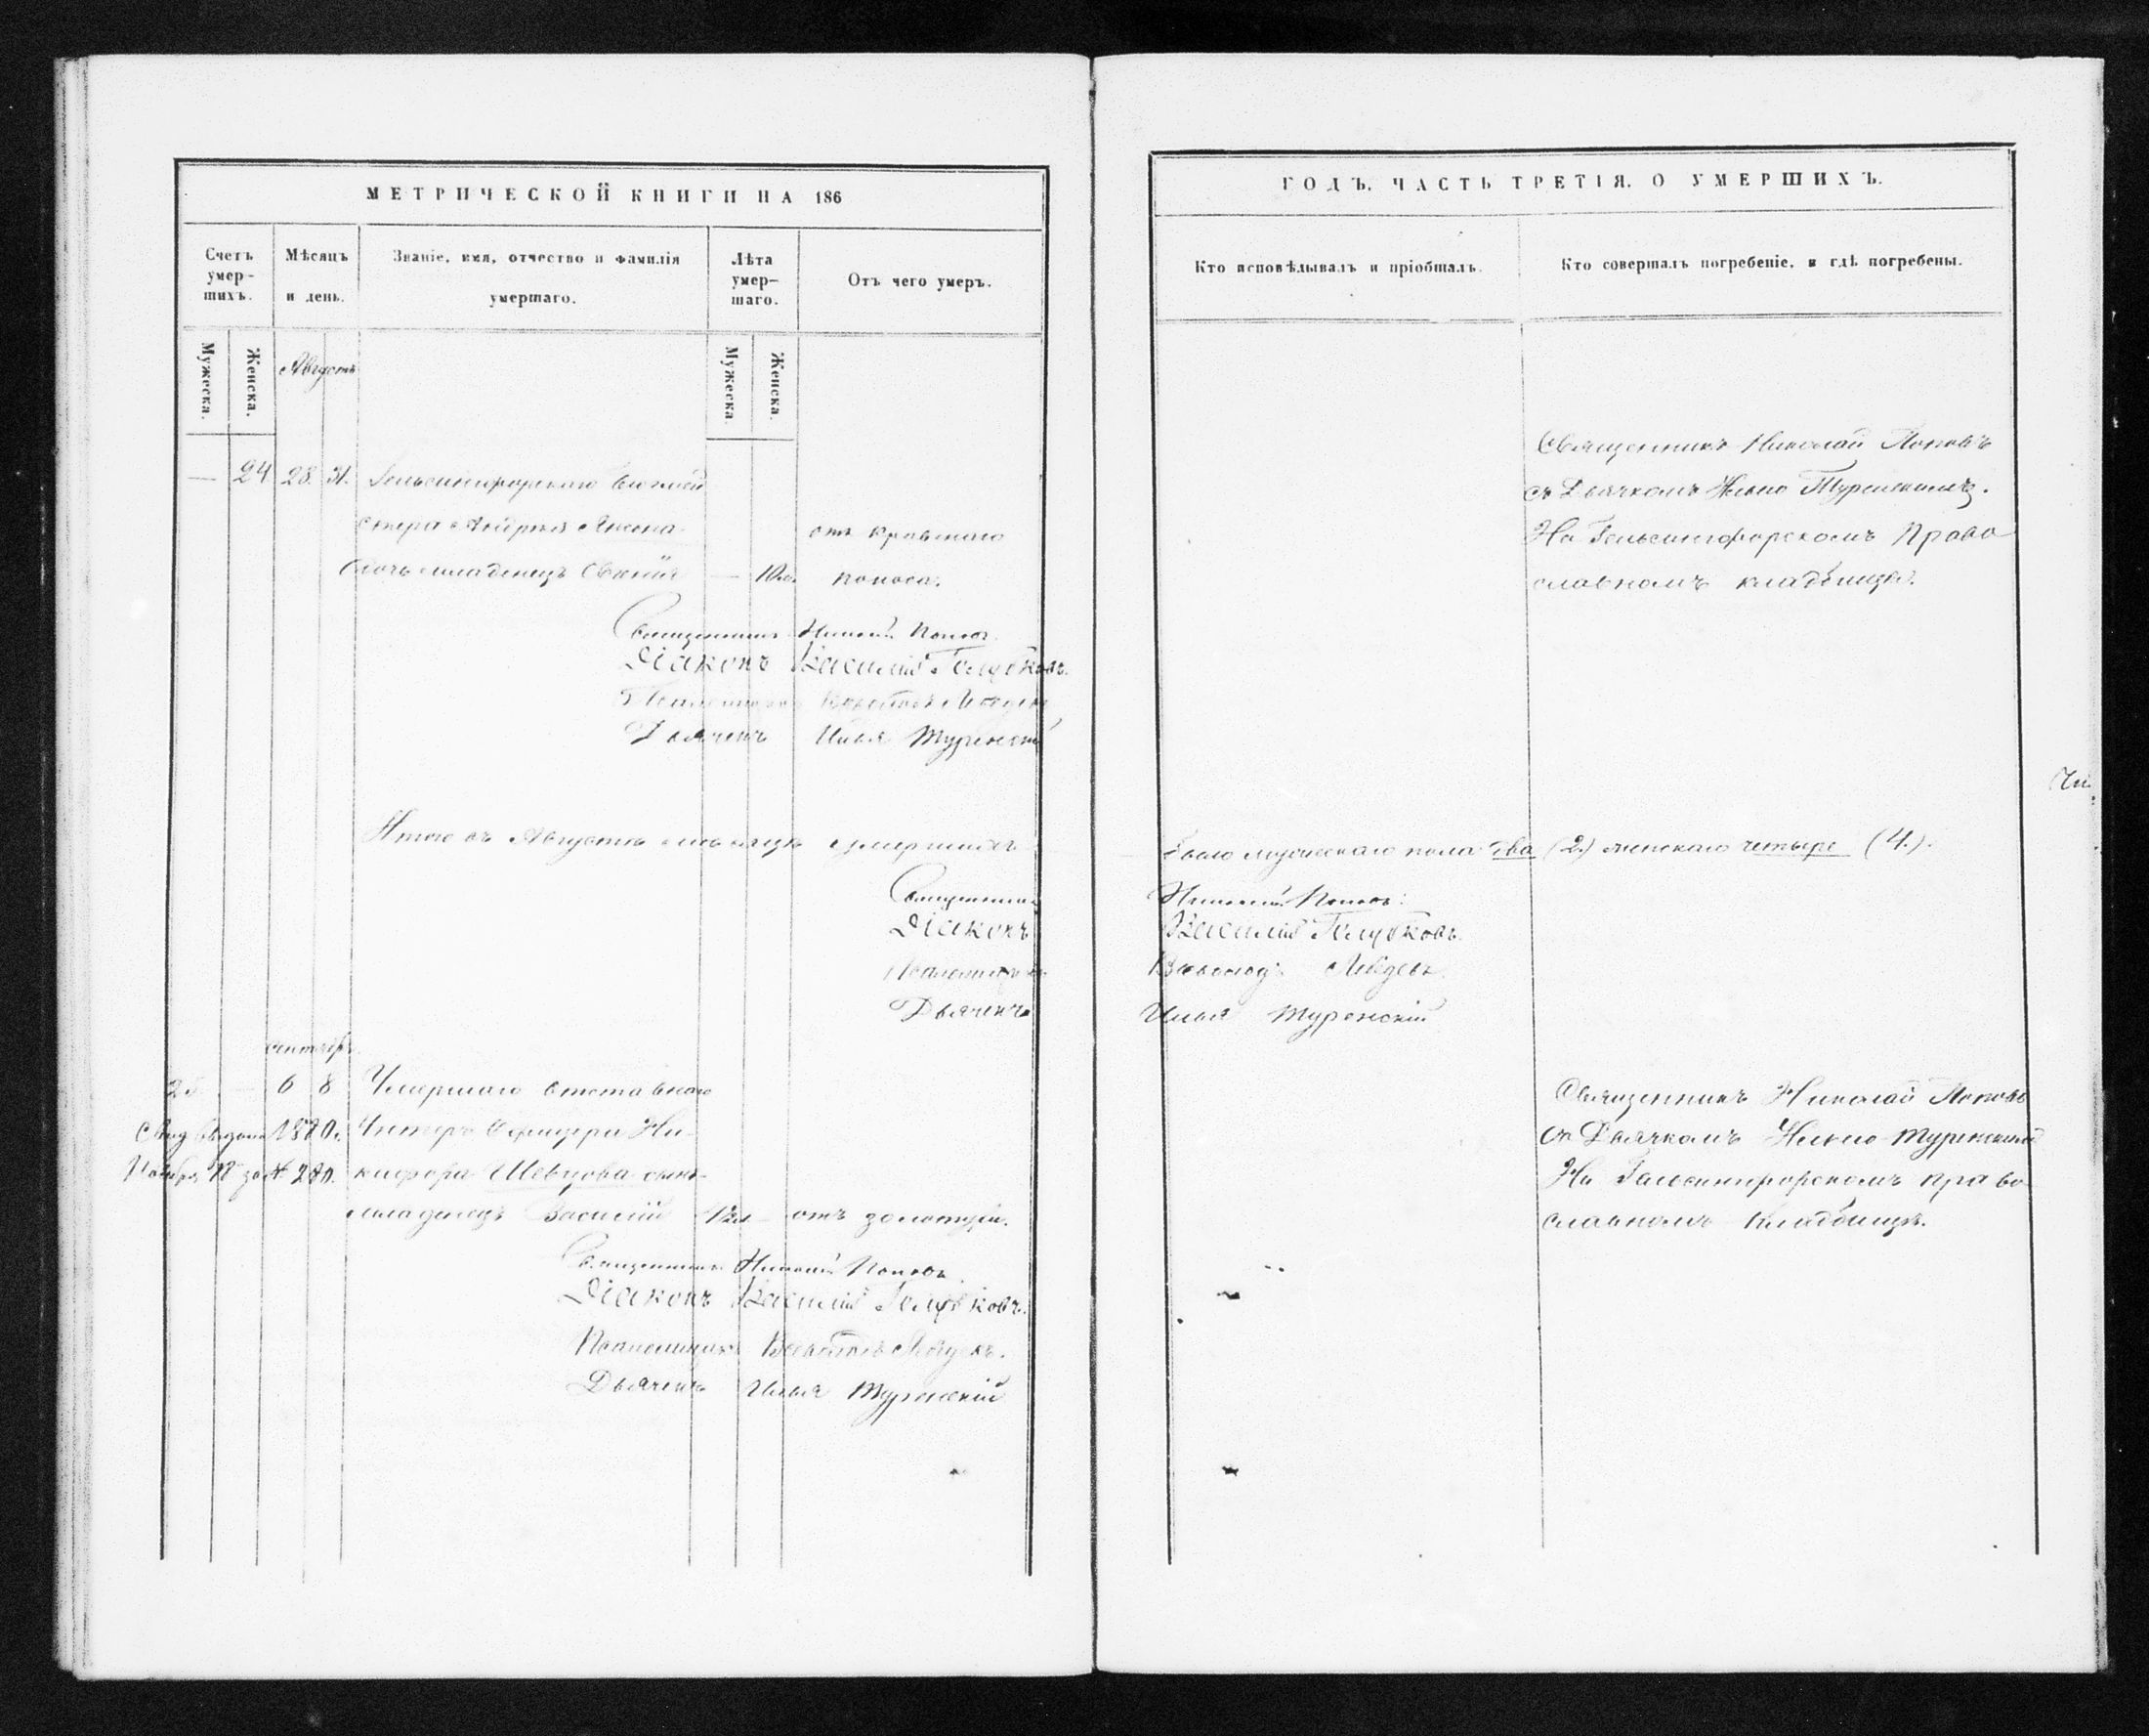 МЕТРИЧЕСКОЙ КНИГИ НА 186
Счетъ умер-шихъ.
Мѣсяцъ и день.
Званіе, имя, отчество и фамилія умершаго.
Лѣта умер-шаго.
Отъ чего умеръ.
Мужеска.
Женска.
Августъ
Мужеска
Женска.
— 24 28. 31. Гельсингфорскаго
Андрея
отъ кроваваго
дочь младенецъ — 10м. поноса.
Священникъ Николай Поповъ.
Діаконъ Василій Голубковъ.
Дьячекъ Илья Туренскій
Итого въ Августѣ мѣсяцѣ умершихъ
Священникъ
Діаконъ
Псаломщикъ
Дьячекъ
Сентябрь
25 — 6 8 Умершаго отставнаго
1880. Унтеръ Офицера Ни-
Ноября 17 за № 280. кифора Шевцова сынъ
младенецъ Василій — отъ золотухи.
Священникъ Николай Поповъ
Діаконъ Василій Голубковъ.
Псаломщикъ
Дьячекъ Илья Туренскій
ГОДЪ. ЧАСТЬ ТРЕТІЯ. О УМЕРШИХЪ.
Кто исповѣдывалъ и пріобщалъ.
Кто совершалъ погребеніе, и гдѣ погребены.
Священникъ Николай Поповъ
съ Дьячкомъ Ильею Туренскимъ.
На Гельсингфорскомъ Право
славномъ кладбищѣ.
было мужескаго пола два (2.) женскаго четыре (4.).
Николай Поповъ.
Василій Голубковъ.
Илья Туренскій
Священникъ Николай Поповъ
съ Дьячкомъ Ильею Туренскимъ
На Гельсингфорскомъ Право
славномъ Кладбищѣ.